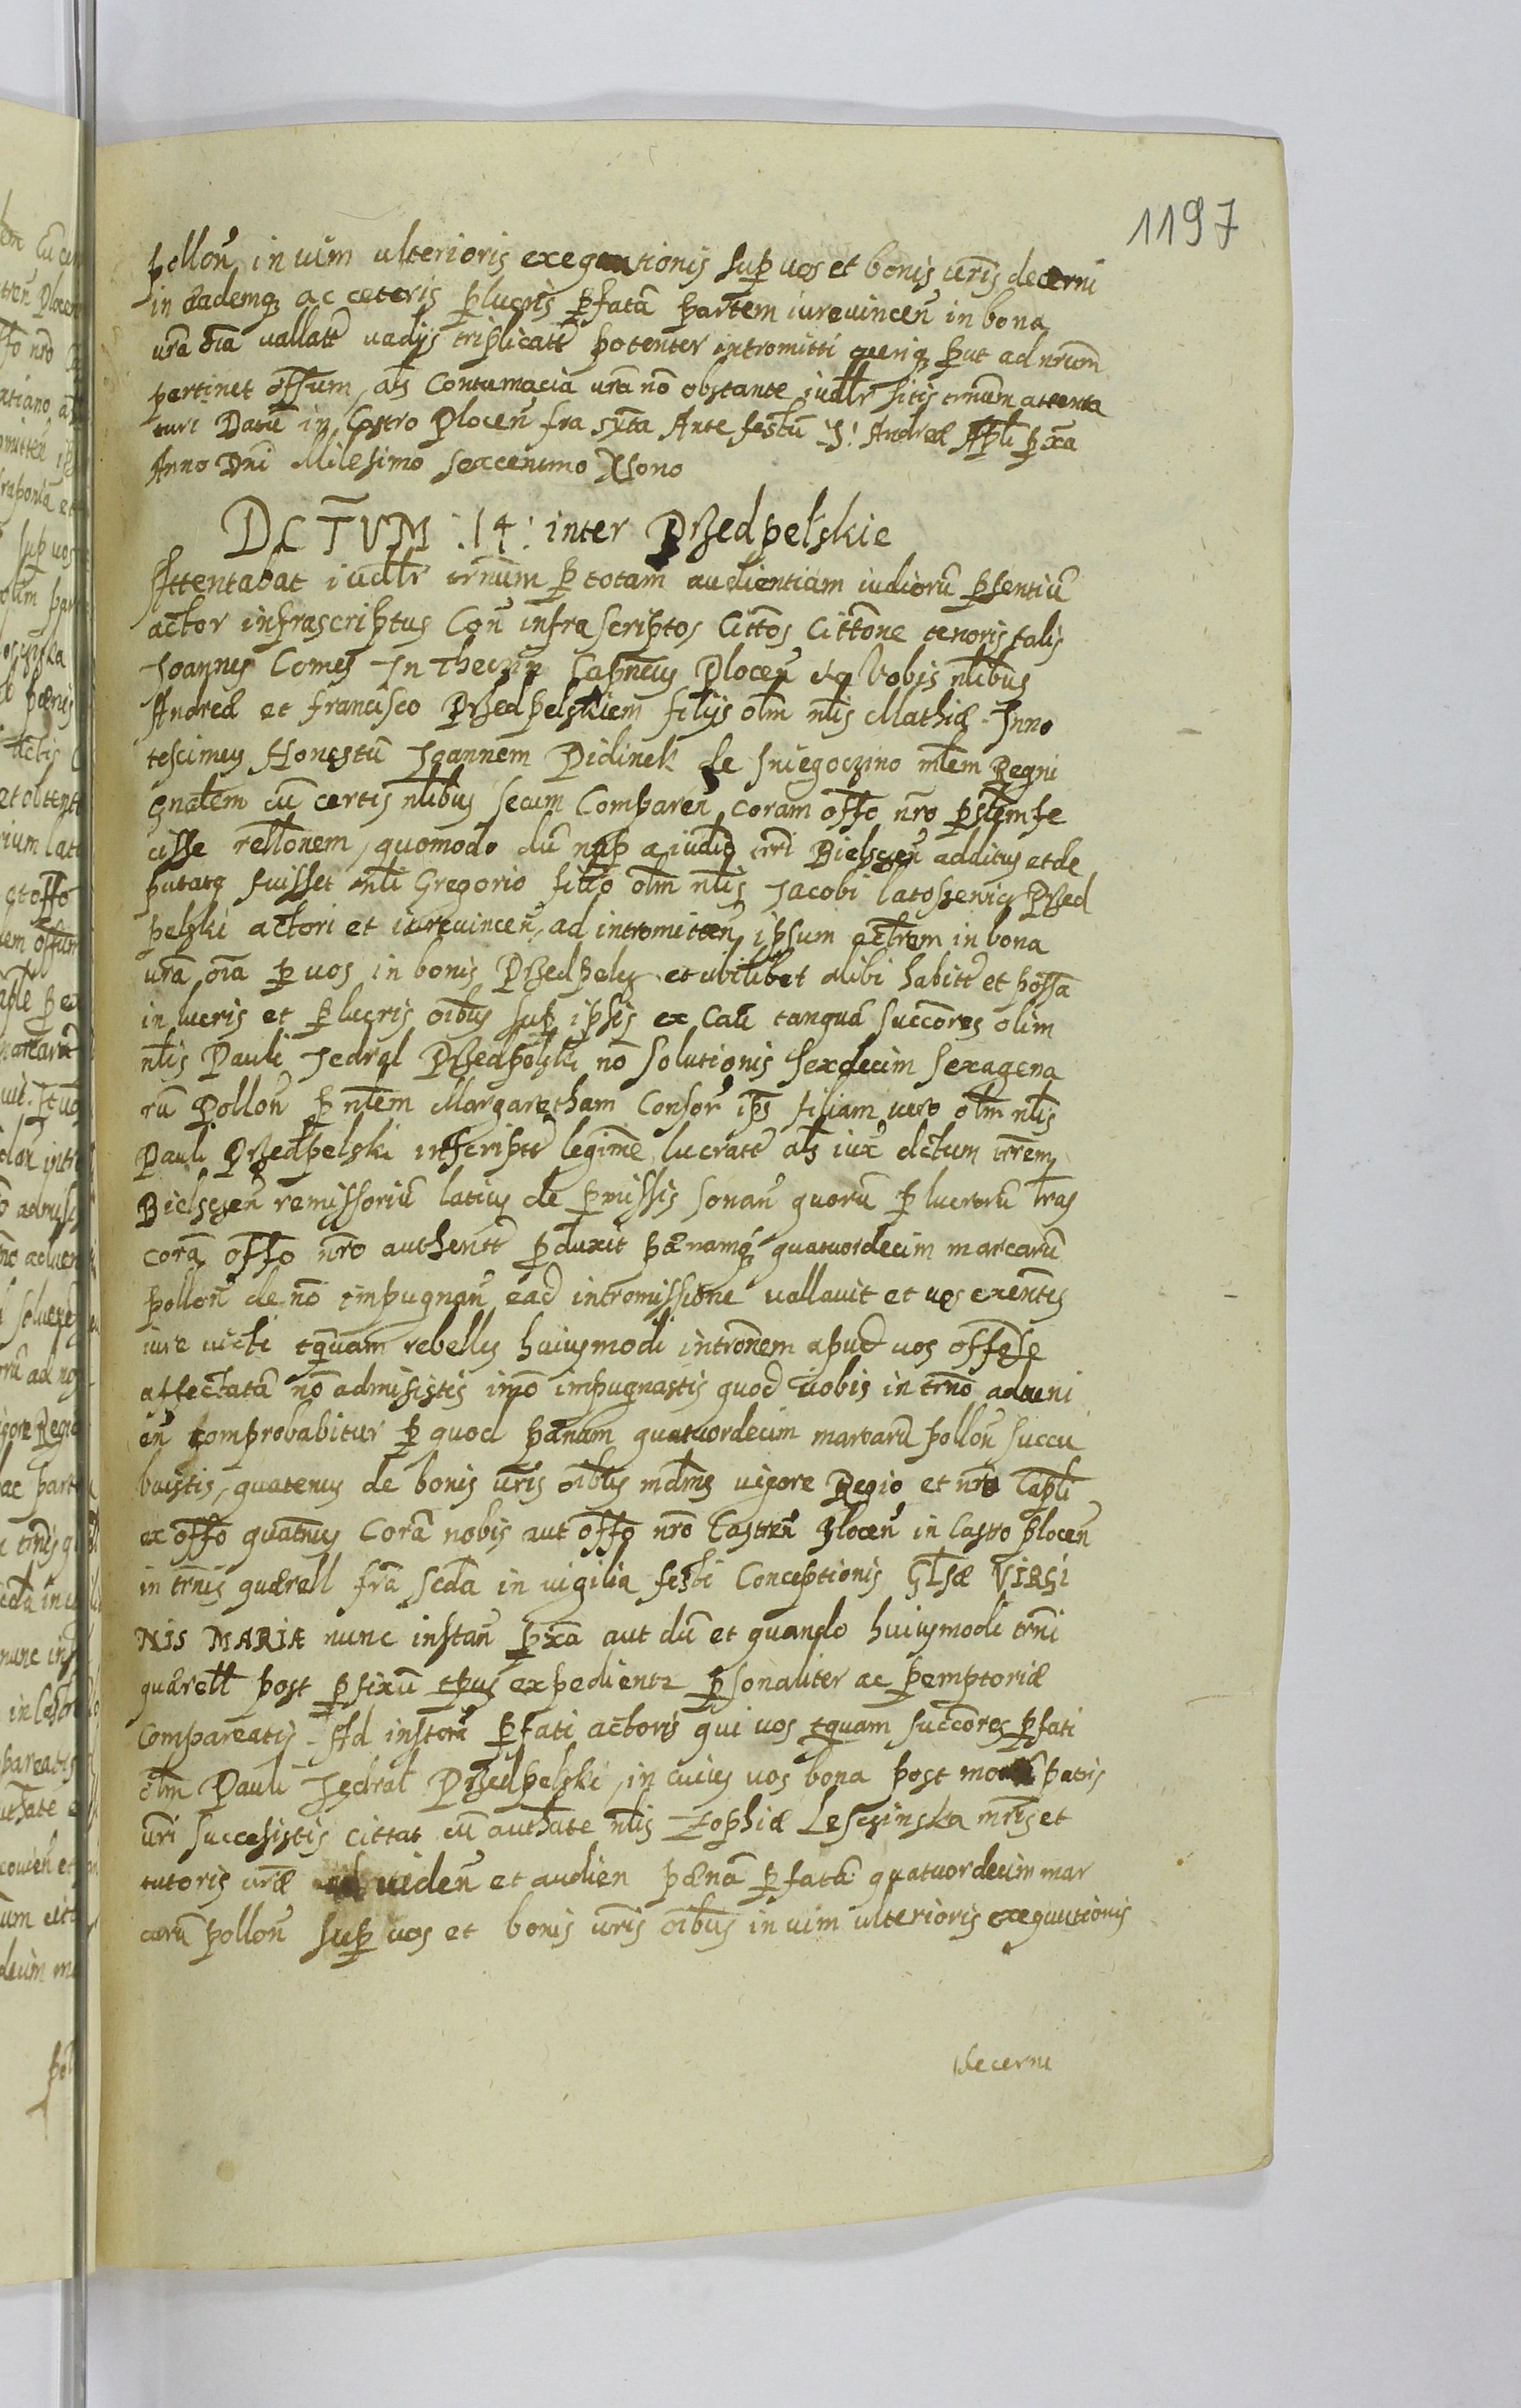 1197
pollon in vim ulterioris exequutionis sup vos et bonis vris decerni
in eademq ac ceteris plucris pfata partem iurevincen in bona
vra oia vallate vadijs triplicate potenter intromitti put ad nrum
pertinet offum, als Contumacia vra no obstante iudlr sitis trnum attenta
turi Datu in Castro Plocen fra sexta Ante festu :S: Andreæ Apli pxa
Anno Dni Milesimo sexcentimo Nono
DCTVM :14: inter Przedpełskie
Attentabat iudlr trnum p totam audientiam iudiciorū psentiū
actor infrascriptus Con infrascriptos Cittos Cittone tenoris talis
Joannes Comes In Theczin Capneus Plocen etq Vobis nlibus
Andreæ et Francisco Przedpelskiem filijs olm nlis Mathiæ. Inno
tescimus Honestū Joannem Pidinek de Sniegoczino mlem Regni
Gnalem cū certis nlibus secum Comparen coram offo nro pstem fe
cisse rellonem, quomodo dū nup a iudio trri Bielscen additus et de
putatq fuisset nli Gregorio filio olm nlis Jacobi Latoszevig Przed
pelski actori et iurevincen, ad intromitten ipsum actrem in bona
vra oia p vos in bonis Przedpelcz et ubilibet alibi habite et possa
in lucris et plucris oibus sup ipsis ex Cau tanquā succores olim
nlis Pauli Jedral Przedpolski no solutionis sexdecim sexagena
rū Pollon p nlem Margaretham Consor ips filiam vero olm nlis
Pauli Przedpelski inscripte legime lucrate als iux dctum trrem
Bielscen remissoriū latius de pmissis sonan quorū plucrorū lras
corā offo nro authente pduxit pænamq quatuordecim marcarū
pollon de no impugnan ead intromissione vallavit et vos exentes
iure victi tqvam rebelles huiusmodi intronem apud vos offose
affectatā no admisistis imo impugnastis quod vobis in trno adveni
en comprobabitur p quod pænam quatuordecim marcarū pollon succu
buistis, quatenus de bonis vris oibus mdms vigore Regio et nro Capli
ex offo quatnus Corā nobis aut offo nro Castren Plocen in Castro Plocen
in trnis quærell fra scda in vigilia festi Conceptionis Glsæ VIRGI
NIS MARIÆ nunc instan pxa aut dū et quando huiusmodi trni
quærell post pfixū tpus expedientr psonaliter ac pemptoriæ
Compareatis. Ad instam pfati actoris qui vos tquam succores pfati
olm Pauli Jedral Przedpelski, in cuius vos bona post patis
vri successistis cittat cū authate nlis Zophiæ Lesczinska mris et
tutoris vræ ad viden et audien pænā pfatā quatuordecim mar
carū pollon sup vos et bonis vris oibus in vim ulterioris exequutionis
decerni